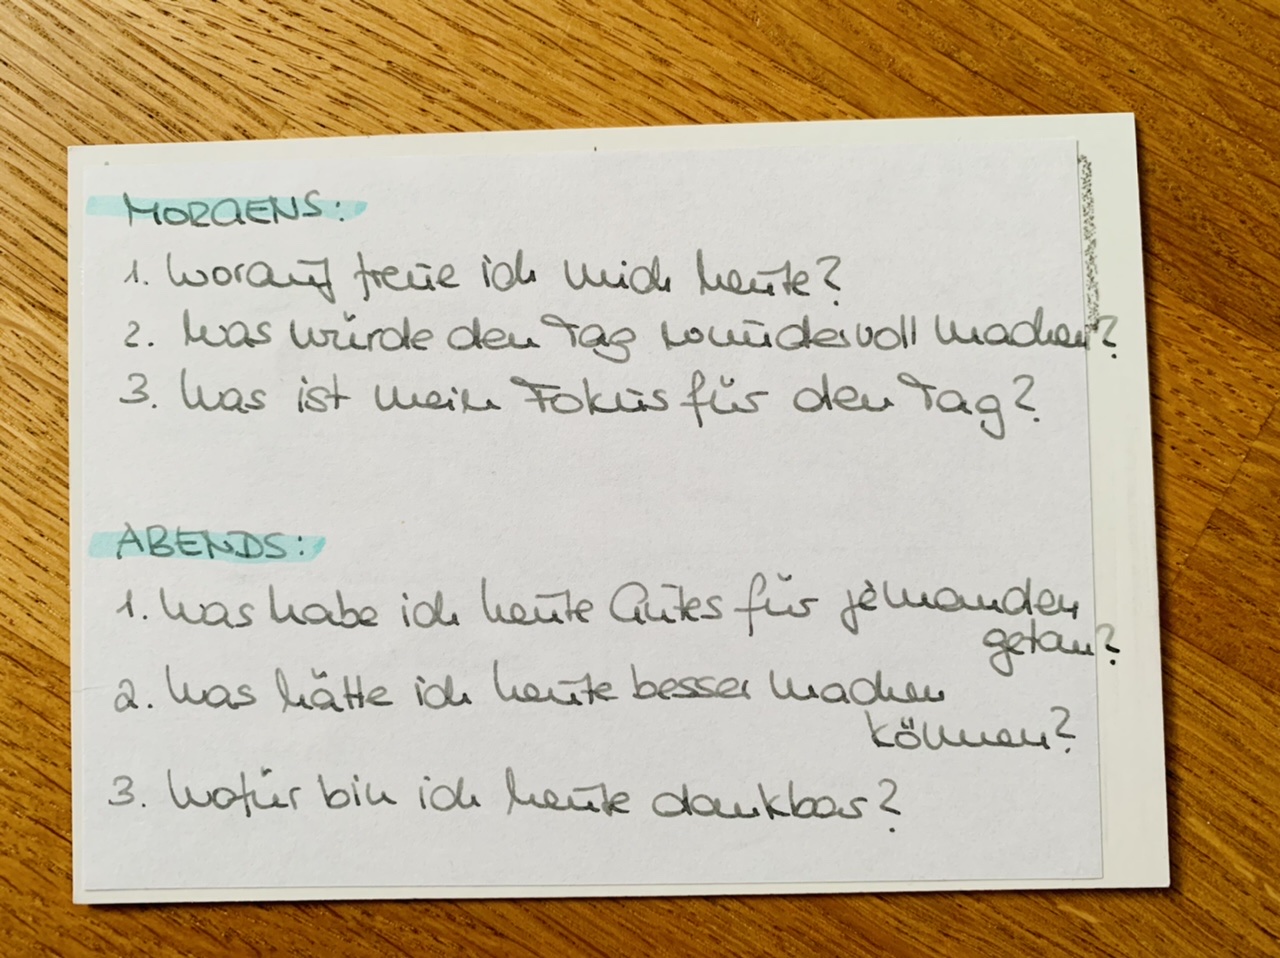 MORGENS:
1. Worauf freue ich mich heute?
2. Was würde den Tag wundervoll machen?
3. Was ist mein Fokus für den Tag?
ABENDS:
1. Was habe ich heute Gutes für jemanden
getan?
2. Was hätte ich heute besser machen
können?
3. Wofür bin ich heute dankbar?